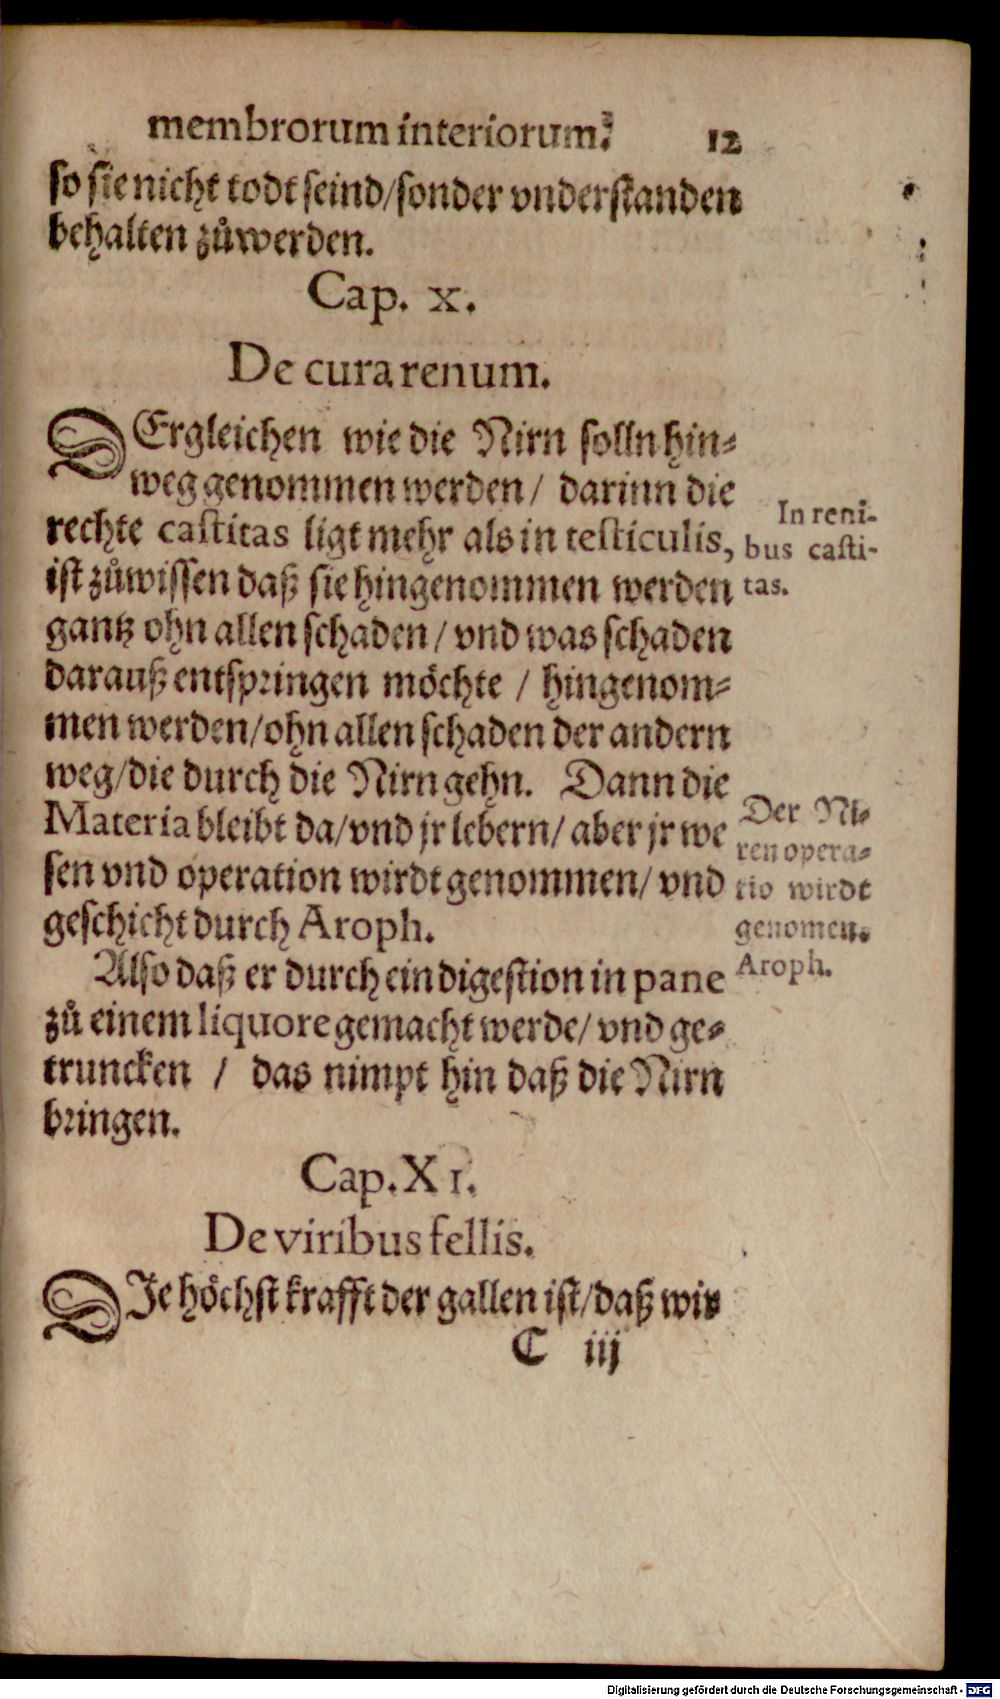 membrorum interiorum. 12
so sie nicht todt seind/sonder vnderstanden
behalten zůwerden.
Cap. x.
De cura renum.
DErgleichen wie die Nirn solln hin⸗
weg genommen werden/ darinn die
rechte castitas ligt mehr als in testiculis,
ist zůwissen daß sie hingenommen werden
gantz ohn allen schaden/ vnd was schaden
darauß entspringen möchte / hingenom⸗
men werden/ohn allen schaden der andern
weg/die durch die Nirn gehn. Dann die
Materia bleibt da/vnd jr lebern/ aber jr we
sen vnd operation wirdt genommen/ vnd
geschicht durch Aroph.
Also daß er durch ein digestion in pane
zů einem liquore gemacht werde/ vnd ge⸗
truncken / das nimpt hin daß die Nirn
bringen.
In reni-
bus casti-
tas.
Der Ni⸗
ren opera⸗
tio wirdt
genomen.
Aroph.
Cap. XI.
De viribus fellis.
DIe höchst krafft der gallen ist/daß wir
C iij
Digitalisierung gefördert durch die Deutsche Forschungsgemeinschaft - DFG